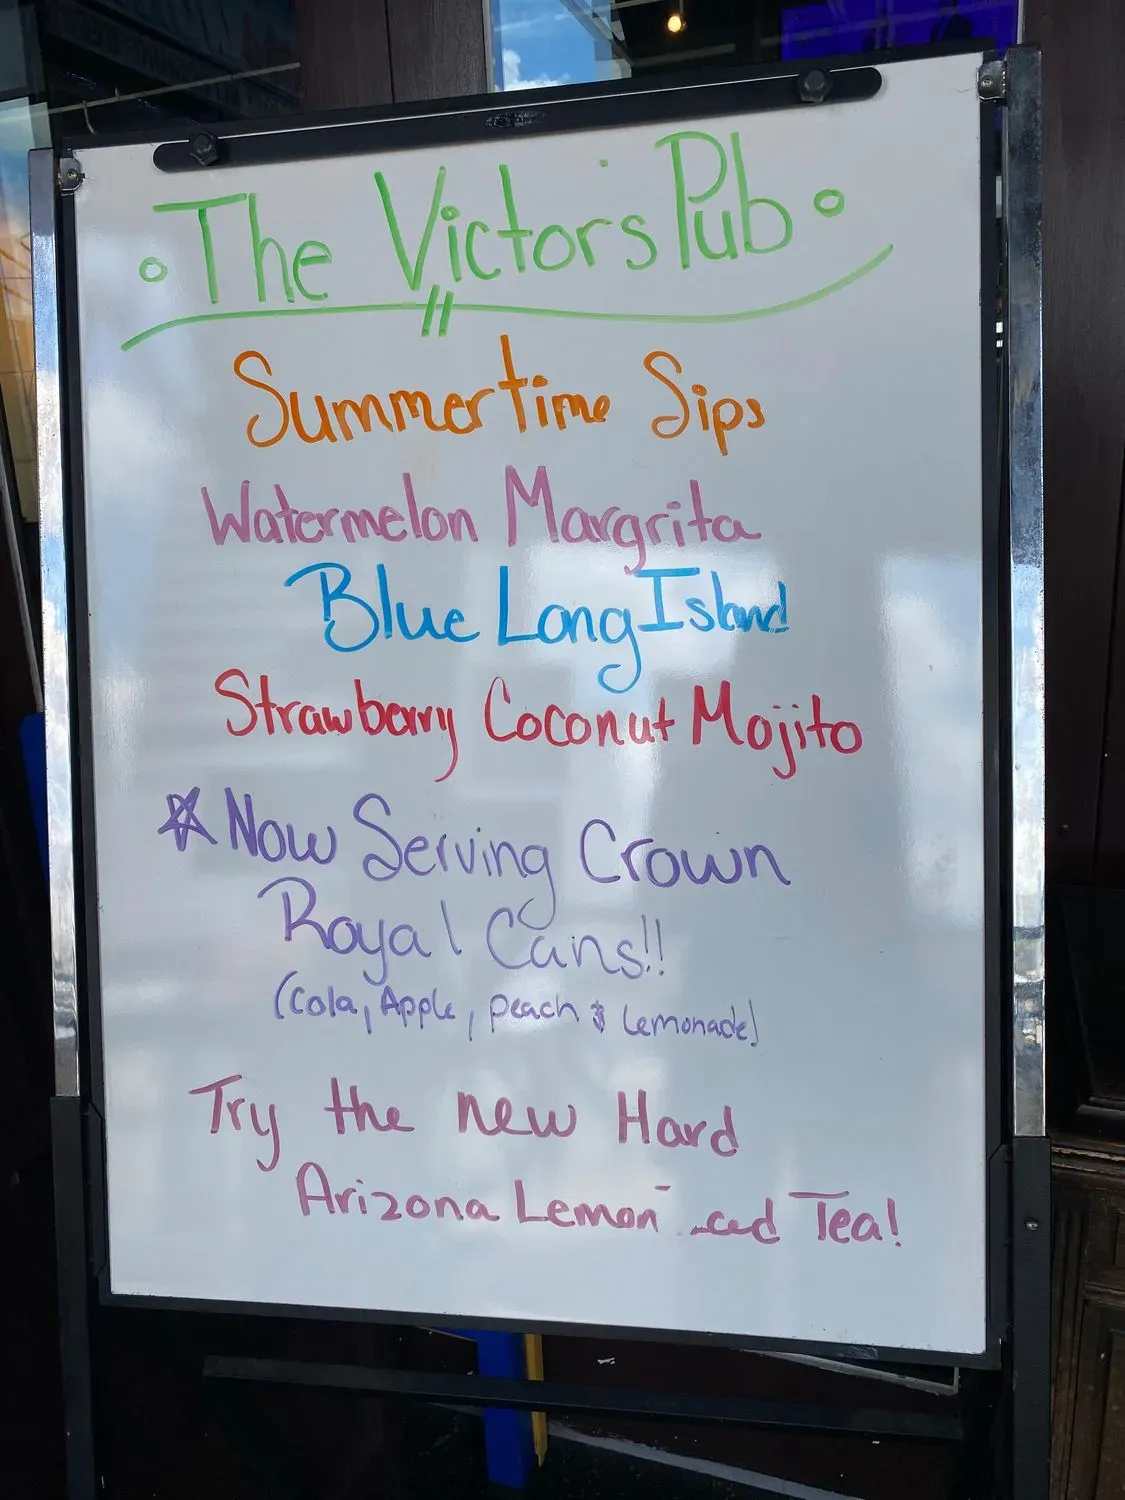 The Victor's Pub
Summertime Sips
Watermelon Margrita
Blue Long Island
Strawberry Coconut Mojito
Now Serving Crown
Royal Cans!!
(Cola, Apple, peach & Lemonade)
Try the new Hard
Arizona Lemon Tea!